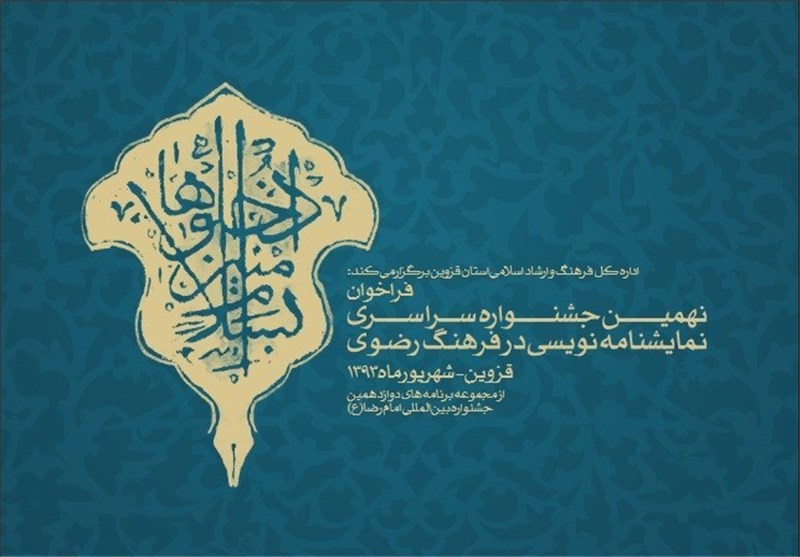 ادخلوها بسلام آمنین
اداره کل فرهنگ و ارشاد اسلامی استان قزوین برگزار می کند:
فراخوان
نهمین جشنواره سراسری
نمایشنامه نویسی در فرهنگ رضوی
قزوین - شهریور ماه ۱۳۹۳
از مجموعه برنامه های دوازدهمین
جشنواره بین المللی امام رضا (ع)